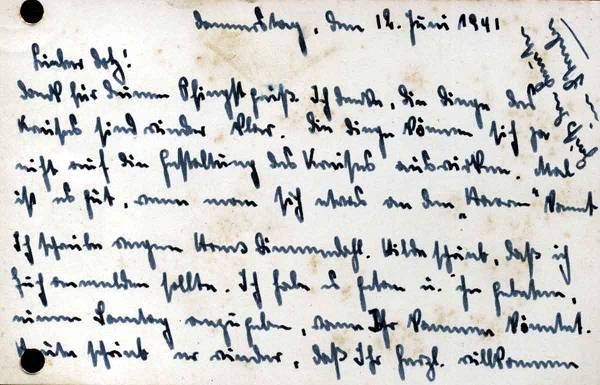 Donnerstag, den 12. Juni 1941
Lieber
Dank für Deinen Pfingstgruß. Ich denke, die Dinge des
Kreises sind wieder klar. Die Dinge können sich ja
nicht auf die Gestaltung des Kreises auswirken. Mal
ist es gut, wenn man sich etwas an den kommt
Ich schreibe wegen Hans Dimmendahl. Hilde schrieb, daß ich
Euch anmelden sollte. Ich habe es getan u. ihn gebeten,
einen Samstag anzugeben, wann Ihr kommen könntet.
Heute schrieb er wieder, daß Ihr herzl. willkommen